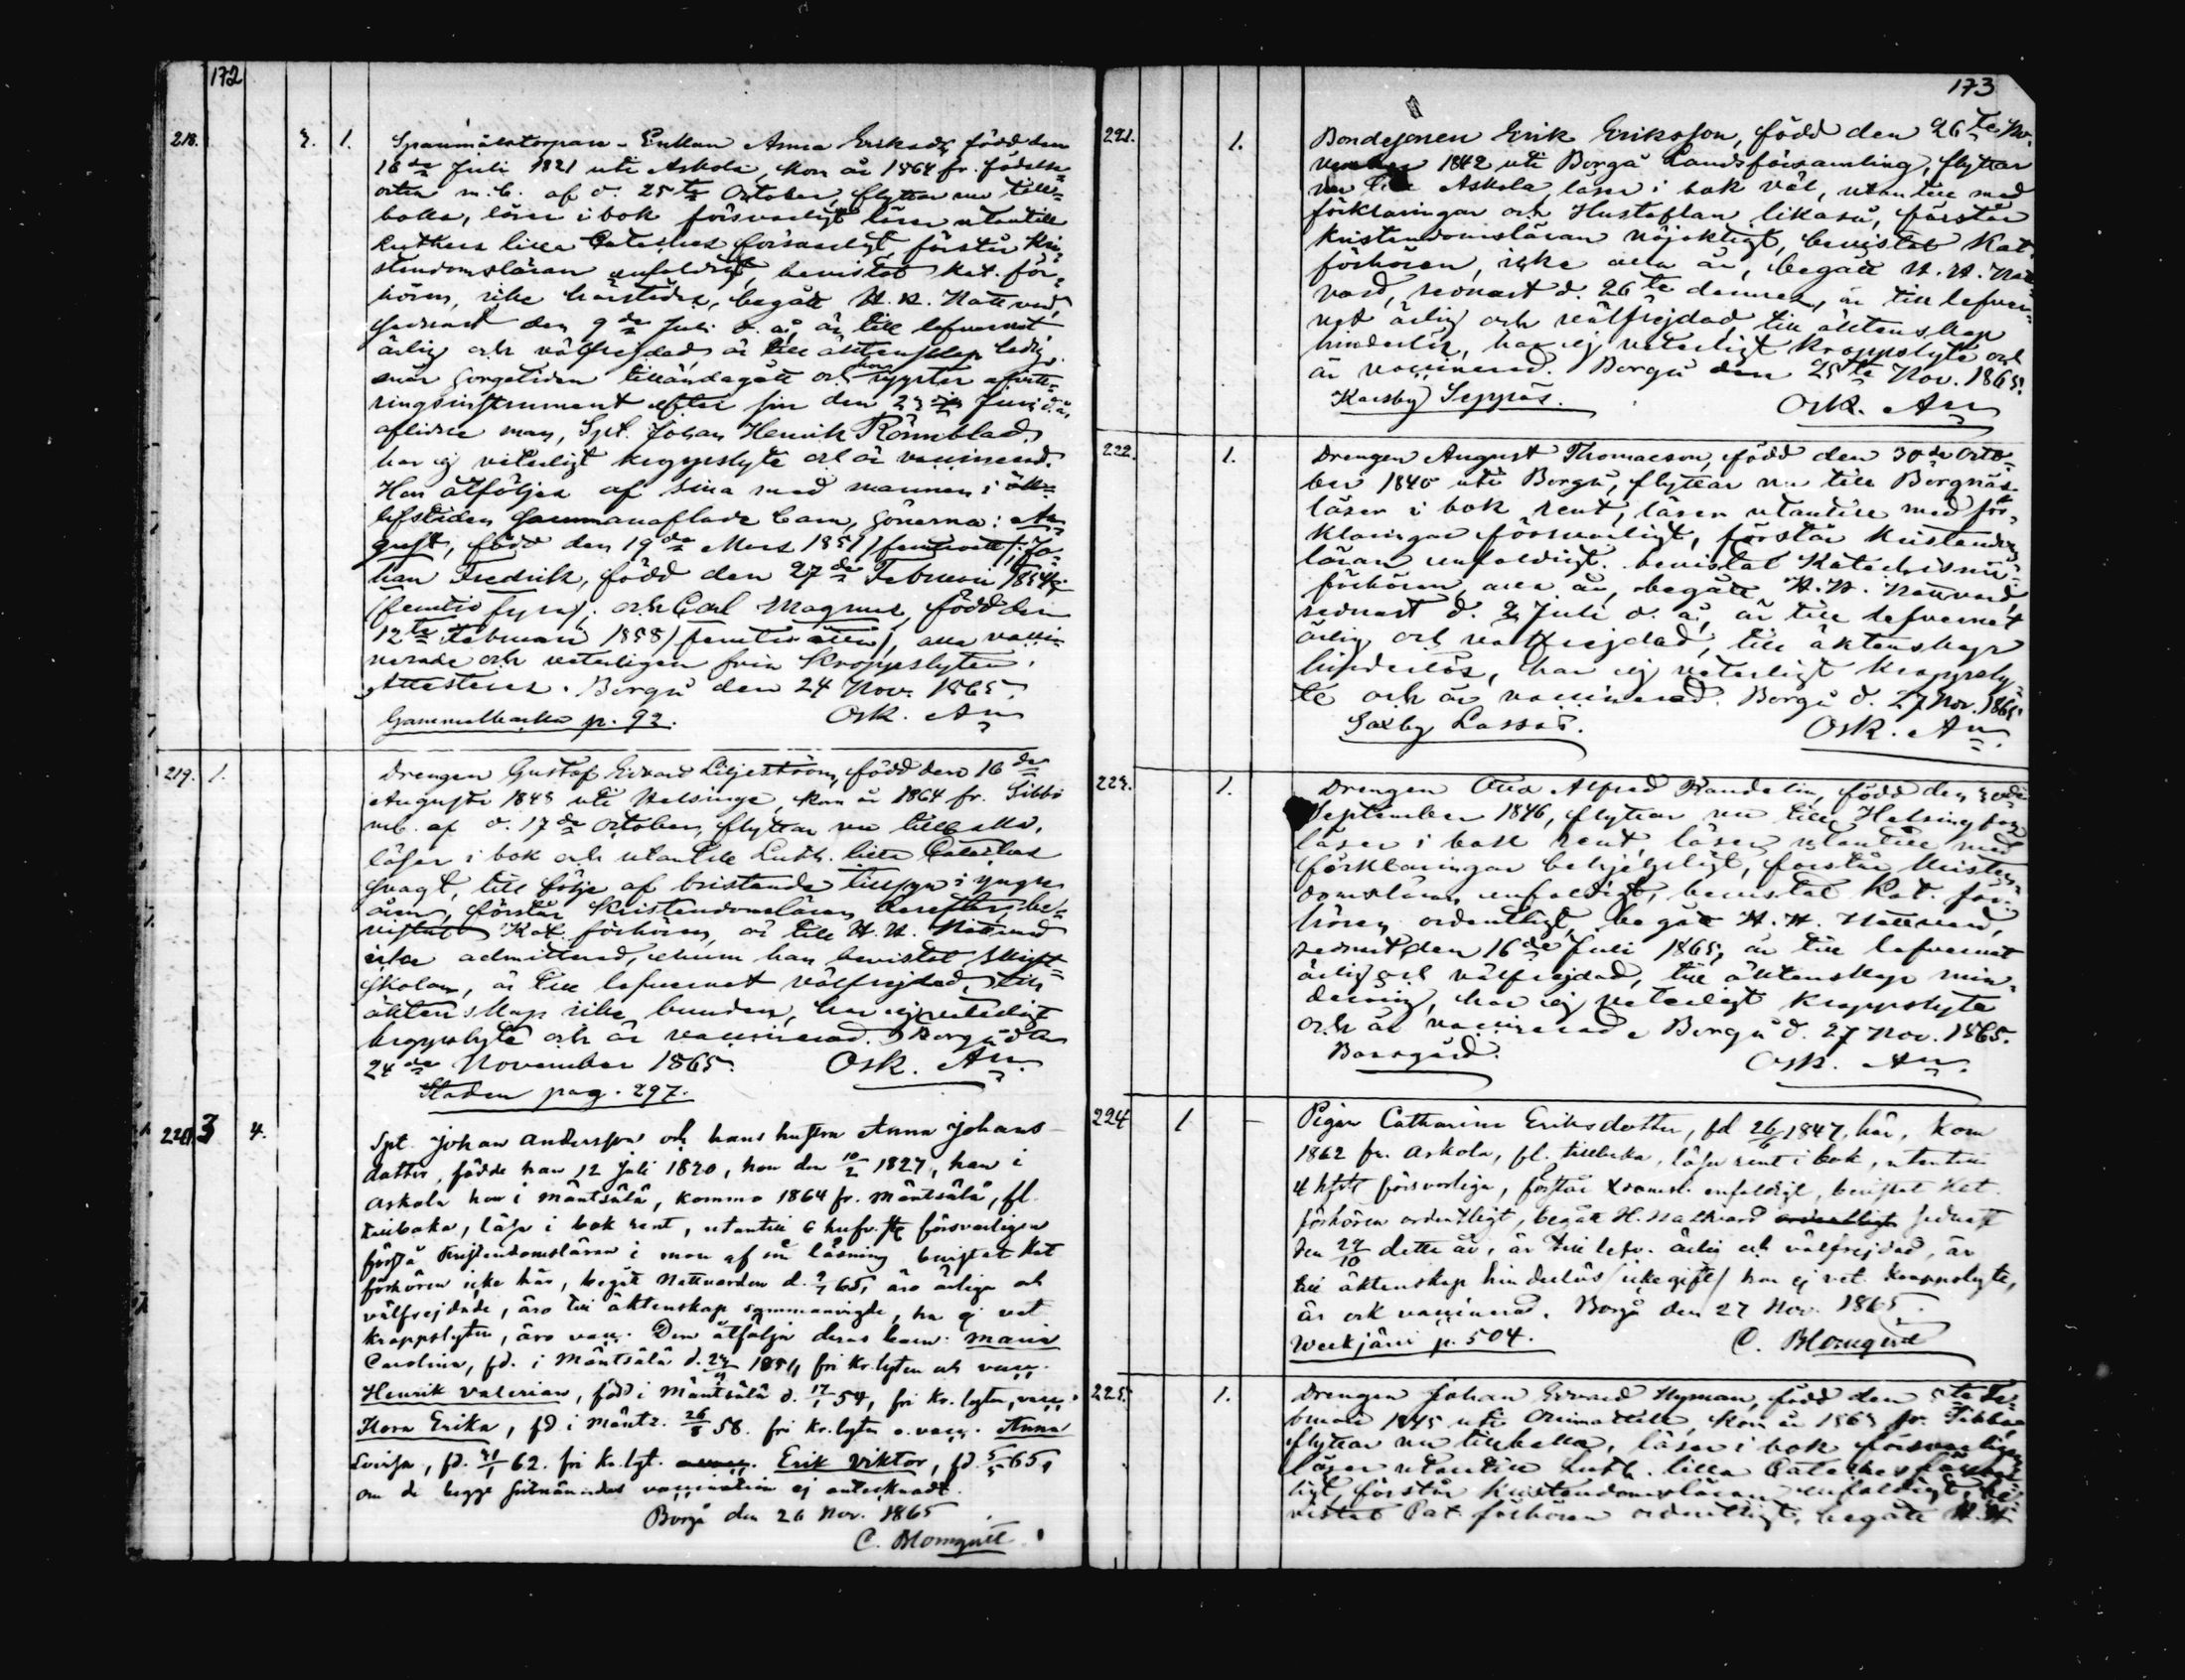 172
218. 3. 1. Spannmålstorpare-Enkan Anna Eriksdr, född den
16de Juli 1821 uti Askola, kom år 1864 fr. födelse-
orten m. b. af d. 25te October, flyttar nu till-
baka, läser i bok försvarligt läser utantill
Luthers lilla Cateches försvarligt, förstår Kri-
stendomsläran enfaldigt, bevistat Kat. för-
hören, icke härstädes, begått H. H. Nattvard,
senast den 9de Juli d. å., är till lefvernet
ärlig och välfrejdad, är till äktenskap ledig,
när sorgetiden tilländagått och hon uppter afvitt-
ringsinstrument efter sin den Juni d. å.
aflidne man, Spt. Johan Henrik Rönnblad,
har ej veterligt kroppslyte och är vaccinerad.
Hon åtföljes af sina med mannen i äkt-
lifstiden sammanaflade barn, sönerna: Au-
gust, född den 19de Mars 1851 /femtioett/; Jo-
han Fredrik, född den 27de Februari 1854
(femtio fyra); och Carl Magnus, född den
12te Februari 1858) /femtio åtta/, alla vacci-
nerade och veterligen fria Kroppslyten.
Attesteras. Borgå den 24 Nov. 1865.
Gammelbacka p. 92. Osk. An
219. 1. Drengen Gustaf Edvard Liljeström, född den 16de
Augusti 1848 uti Helsinge, kom år 1864 fr. Sibbo
m.b. af d. 17de October, flyttar nu tillbaka,
läser i bok och utantill Luth. lilla Cateches
svagt, till följe af bristande tillsyn i yngre
åren, förstår Kristendomsläran derefter, be-
vistat Kat. förhören, är till H. H. Nattvard
icke admitterad, ehuru han bevistat Skrift-
skolan, är till lefvernet välfrejdad, till
äktenskap icke bunden, har ej veterligt
kroppslyte och är vaccinerad. Borgå den
24de November 1865. Osk. An
Staden pag. 297.
220. 3 4. Spt. Johan Andersson och hans hustru Anna Johans-
dotter, födde han 12 Juli 1820, hon den 10/2 1827, han i
Askola hon i Mäntsälä, komma 1864 fr. Mäntsälä, fl.
tillbaka, läsa i bok rent, utantill 6 hufv. st. försvarligen
förstå Kristendomsläran i mon af sin läsning bevistat Kat
förhören icke här, begått Nattvarden d. 65, äro ärliga och
välfrejdade, äro till äktenskap sammanvigde, ha ej vet
kroppslyten, äro vacc. Dem åtfölja deras barn: Maria
Carolina, fd. i Mäntsälä d. 1851, fri kr. lyten och vacc.
Henrik Valerian, född i Mäntsälä d. 17/1 54, fri kr. lyten, vacc.
Erika, fd i Mäntz. 26/8 58. fri kr. lyten o. vacc. Anna
Lovisa, fd. 62. fri kr. lyt. Erik Viktor, fd. 5/5 65,
om de begge sistnämndas vaccination ej antecknadt.
Borgå den 26 Nov. 1865
C. Blomqvist
173
221. 1. Bondesonen Erik Eriksson, född den 26te No-
vember 1842 uti Borgå Landsförsamling, flyttar
nu till Askola läser i bok väl, utantill med
förklaringar och Hustaflan likaså, förstår
Kristendomsläran nöjaktigt, bevistat Kat.
förhören, icke alla år, begått H. H. Natt-
vard, senast d. 26te dennes, är till lefver-
net ärlig och välfrejdad, till äktenskap
hinderlös, har ej veterligt kroppslyte och
är vaccinerad. Borgå den 25te Nov. 1865.
Karsby Seppäs. Osk. An
222. 1. Drengen August Thomasson, född den 30de Octo-
ber 1840 uti Borgå, flyttar nu till Borgnäs
läser i bok rent, läser utantill med för-
klaringar försvarligt, förstår Kristendoms
läran enfaldigt. bevistat Katechismi-
förhören, alla år, begått H. H. Nattvard,
senast d. 2 Juli d. å., är till lefvernet
ärlig och välfrejdad, till äktenskap
hinderlös, har ej veterligt kroppsly-
te och är vaccinerad. Borgå d. 27 Nov. 1865
Saxby Lassas. Osk. An
223. 1. Drengen Otto Alfred Randelin, född den
September 1846, flyttar nu till Helsingfors
läser i bok rent, läser utantill med
förklaringar behjelpligt, förstår Kristen-
domsläran enfaldigt, bevistat Kat. för-
hören ordentligt, begått H. H. Nattvard,
senast den 16de Juli 1865, är till lefvernet
ärlig och välfrejdad, till äktenskap min-
derårig, har ej veterligt kroppslyte
och är vaccinerad. Borgå d. 27 Nov. 1865.
Bassgård. Osk. An
224 1 – Pigan Catharina Eriksdotter, fd 26/6 1847, här, kom
1862 fr. Askola, fl. tillbaka, läser rent i bok, utantill
4 hfst försvarliga, förstår Xdomsl. enfaldigt, bevistat Kat.
förhören ordentligt, begått H. Nattvard ordentligt senast
den 29/10 detta år, är till lefv. ärlig och välfrejdad, är
till äktenskap hinderlös /icke gift/ har ej vet. kroppslyte,
är ock vaccinerad. Borgå den 27 Nov. 1865.
Weckjärvi p. 504. C. Blomqvist
225. 1. Drengen Johan Edvard Nyman, född den 5te Fe-
bruari 1845 uti Orimattila, kom år 1863 fr. Sibbo
flyttar nu tillbaka, läser i bok försvarligen
läser utantill Luth. lilla Cateches försvar-
ligt, förstår Kristendomsläran enfaldigt, be-
vistat Cat. förhören ordentligt, begått H. H.